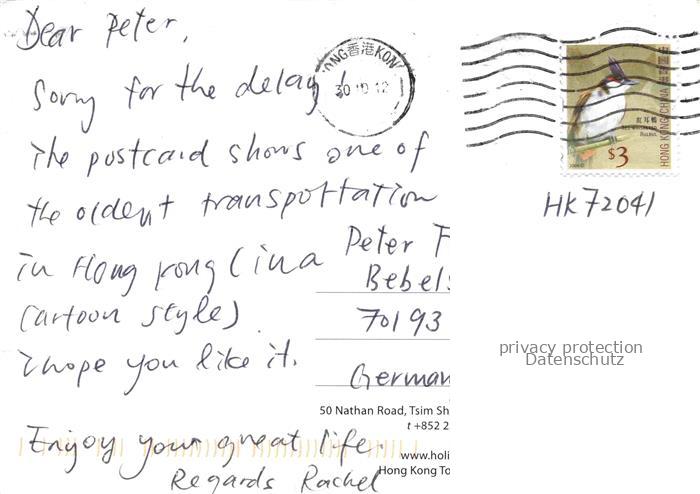 Dear Peter,
Sorry for the delay!
The postcard shows one of
the oldent transpottation
in Hong Kong (in a
Cartoon style)
I hope you like it.
Enjoy your great life.
Regards Rachel
HONG KONG 香港
30 10 12
HONG KONG, CHINA 中國香港
紅耳鵯
RED-WHISKERED
BULBUL
$3
HK72041
Peter F
Bebels
70193
German
privacy protection
Datenschutz
50 Nathan Road, Tsim Sh
t +852 2
www.holi
Hong Kong To